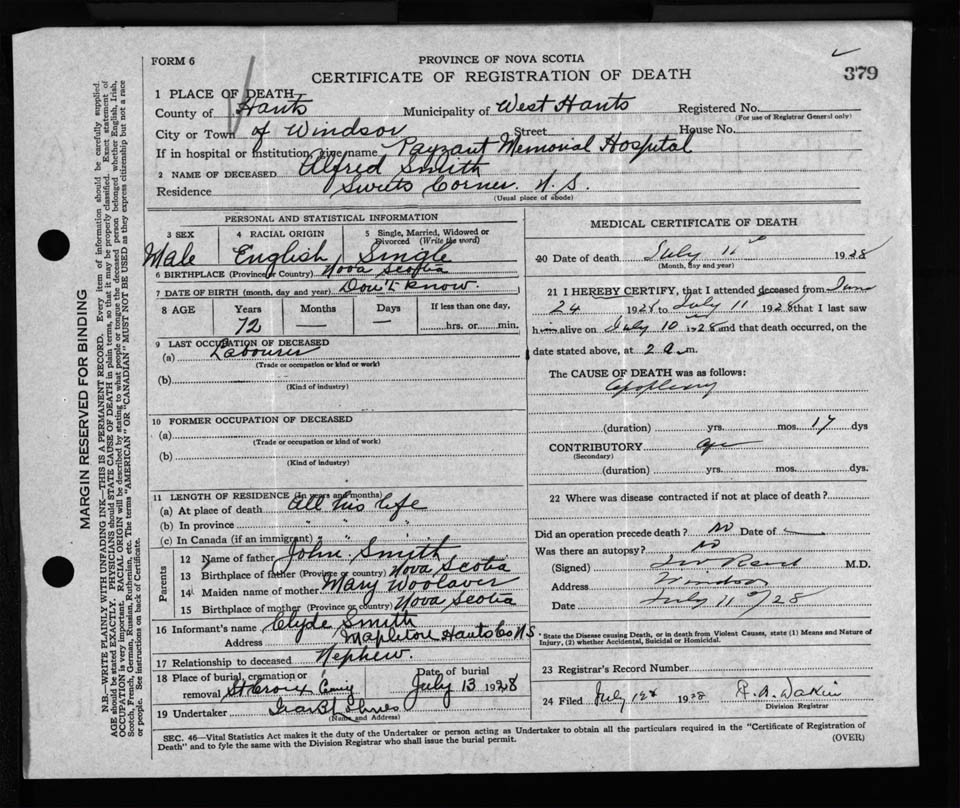 FORM 6
PROVINCE OF NOVA SCOTIA
CERTIFICATE OF REGISTRATION OF DEATH
379
1 PLACE OF DEATH
County of Hants Municipality of West Hants Registered No.
(For use of Registrar General only)
City or Town of Windsor Street House No.
If in hospital or institution, give name Payzant Memorial Hospital
2 NAME OF DECEASED Alfred Smith
Residence Sweets Corner. N. S.
(Usual place of abode)
PERSONAL AND STATISTICAL INFORMATION
3 SEX 4 RACIAL ORIGIN 5 Single, Married, Widowed or Divorced (Write the word)
Male English Single
6 BIRTHPLACE (Province or Country) Nova Scotia
7 DATE OF BIRTH (month, day and year) Don't know.
8 AGE Years Months Days If less than one day,
72 — — hrs. or min.
9 LAST OCCUPATION OF DECEASED
(a) Labourer
(Trade or occupation or kind or work)
(b)
(Kind of industry)
10 FORMER OCCUPATION OF DECEASED
(a)
(Trade or occupation or kind of work)
(b)
(Kind of industry)
11 LENGTH OF RESIDENCE (In years and months)
(a) At place of death all his life
(b) In province " " "
(c) In Canada (if an immigrant) "
Parents
12 Name of father John Smith
13 Birthplace of father (Province or country) Nova Scotia
14 Maiden name of mother Mary Woolaver
15 Birthplace of mother (Province or country) Nova Scotia
16 Informant's name Clyde Smith
Address Mapleton Hants Co N S
17 Relationship to deceased Nephew.
18 Place of burial, cremation or removal St Croix Date of burial July 13 1928
19 Undertaker
(Name and Address)
MEDICAL CERTIFICATE OF DEATH
20 Date of death July 11th 1928
(Month, Day and year)
21 I HEREBY CERTIFY, that I attended deceased from June
24 1928 to July 11 1928 that I last saw
him alive on July 10 1928 and that death occurred, on the
date stated above, at 2 a.m.
The CAUSE OF DEATH was as follows:
Apoplexy
(duration) yrs. mos. 17 dys
CONTRIBUTORY age
(Secondary)
(duration) yrs. mos. dys.
22 Where was disease contracted if not at place of death?
Did an operation precede death? no Date of —
Was there an autopsy? no
(Signed) M.D.
Address Windsor
Date July 11th/28
* State the Disease causing Death, or in death from Violent Causes, state (1) Means and Nature of Injury, (2) whether Accidental, Suicidal or Homicidal.
23 Registrar's Record Number
24 Filed July 12th 1928
Division Registrar
SEC. 46—Vital Statistics Act makes it the duty of the Undertaker or person acting as Undertaker to obtain all the particulars required in the "Certificate of Registration of
Death" and to fyle the same with the Division Registrar who shall issue the burial permit.
(OVER)
MARGIN RESERVED FOR BINDING
N.B.—WRITE PLAINLY WITH UNFADING INK—THIS IS A PERMANENT RECORD. Every item of information should be carefully supplied.
AGE should be stated EXACTLY. PHYSICIANS should STATE CAUSE OF DEATH in plain terms, so that it may be properly classified. Exact statement of
OCCUPATION is very important. RACIAL ORIGIN will be described by stating to what people or tongue the deceased person belonged whether English, Irish,
Scotch, French, German, Russian, Ruthenian, etc. The terms "AMERICAN" OR "CANADIAN" MUST NOT BE USED as they express citizenship but not a race
or people. See instructions on back of Certificate.